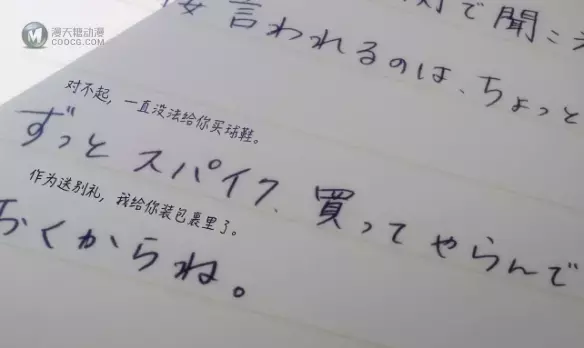 漫天糖动漫
COOCG.COM
で聞こ
言われるのは、ちょっと
对不起，一直没法给你买球鞋。
ずっとスパイク、買ってやらんで
作为送别礼，我给你装包裹里了。
おくからね。